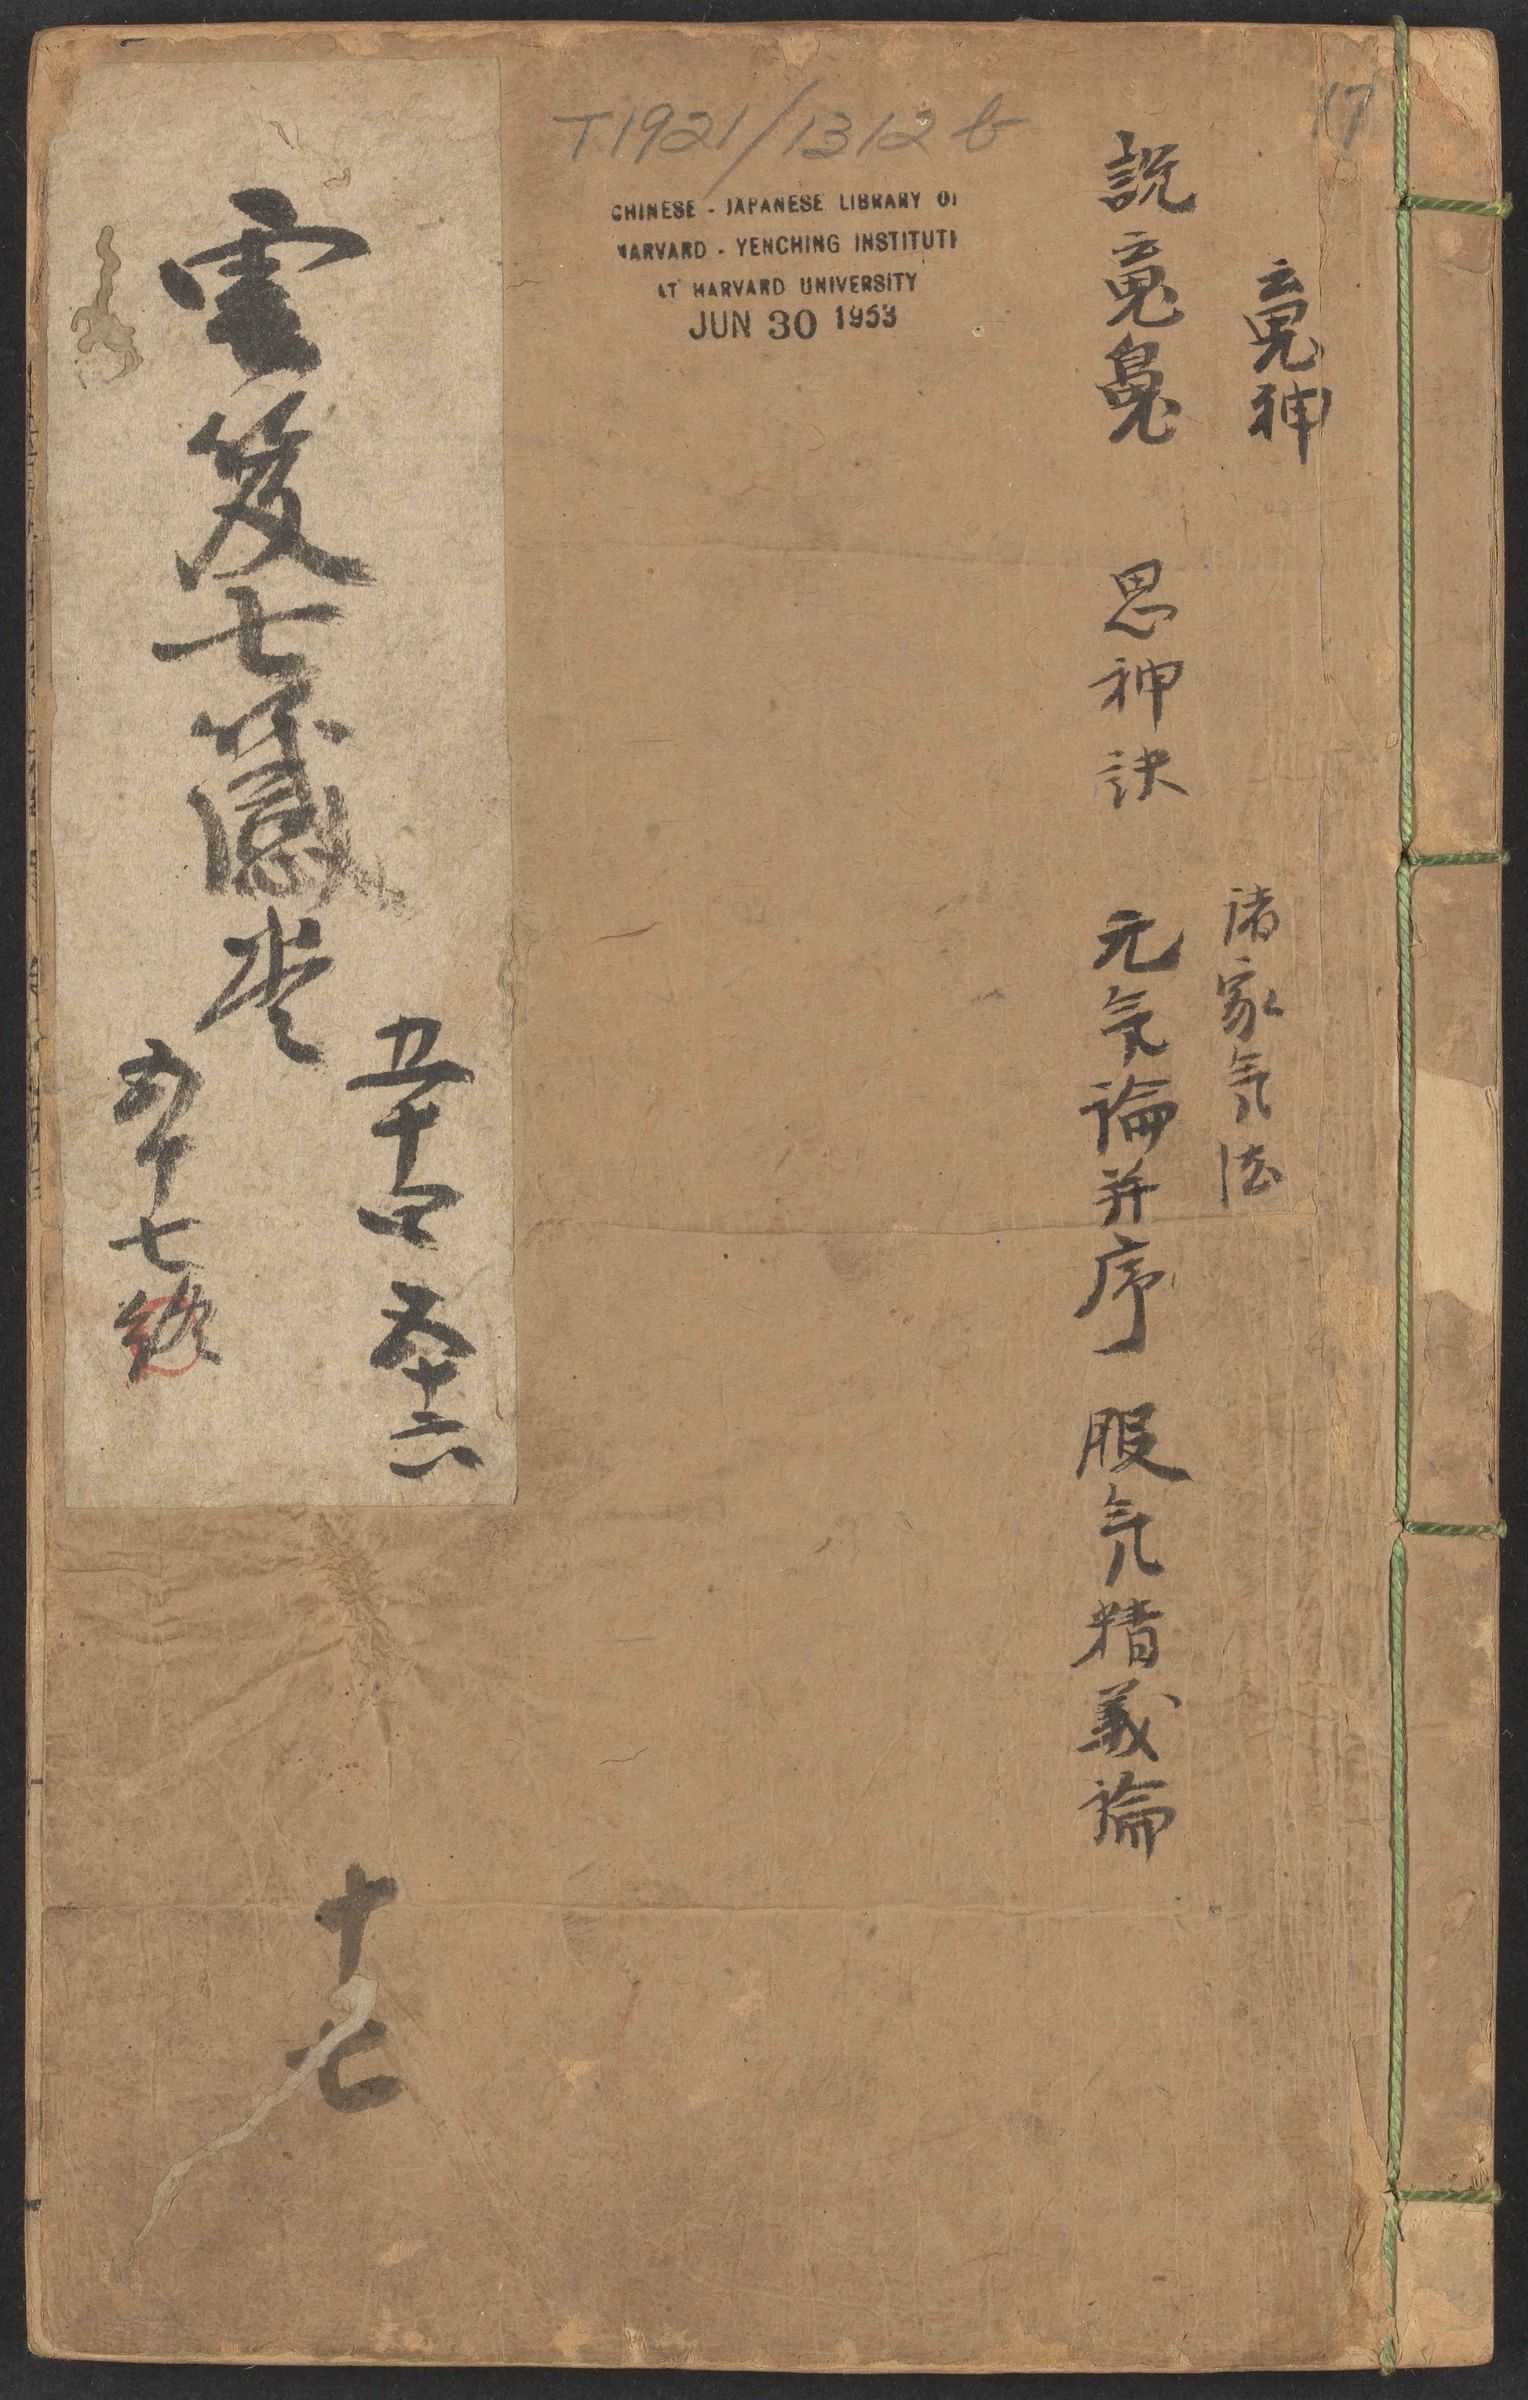 17
魂神
諸家氣法
說魂魄 思神訣 元氣論并序 服氣精義論
T1921/1312 b
CHINESE - JAPANESE LIBRARY OF
HARVARD - YENCHING INSTITUTE
AT HARVARD UNIVERSITY
JUN 30 1953
雲笈七籤卷
五十四 五十六
五十七終
十七